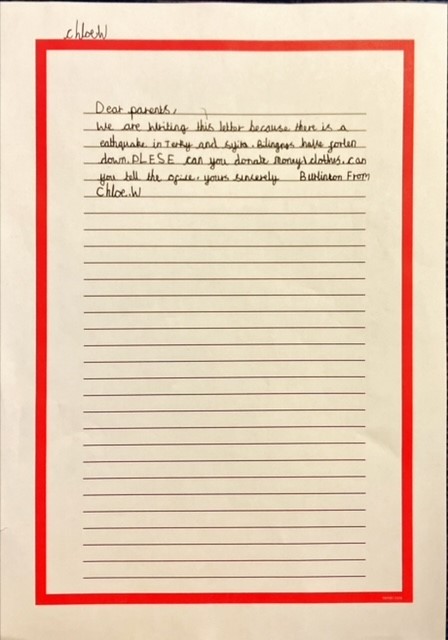 chloeW
Dear parents,
We are writing this letter because there is a
eathquake in Terky and Syira. Bilingnes have forlen
down. PLESE can you donate money\clothes. can
you tell the ofice. yours sincerely Burlinton From
Chloe.W